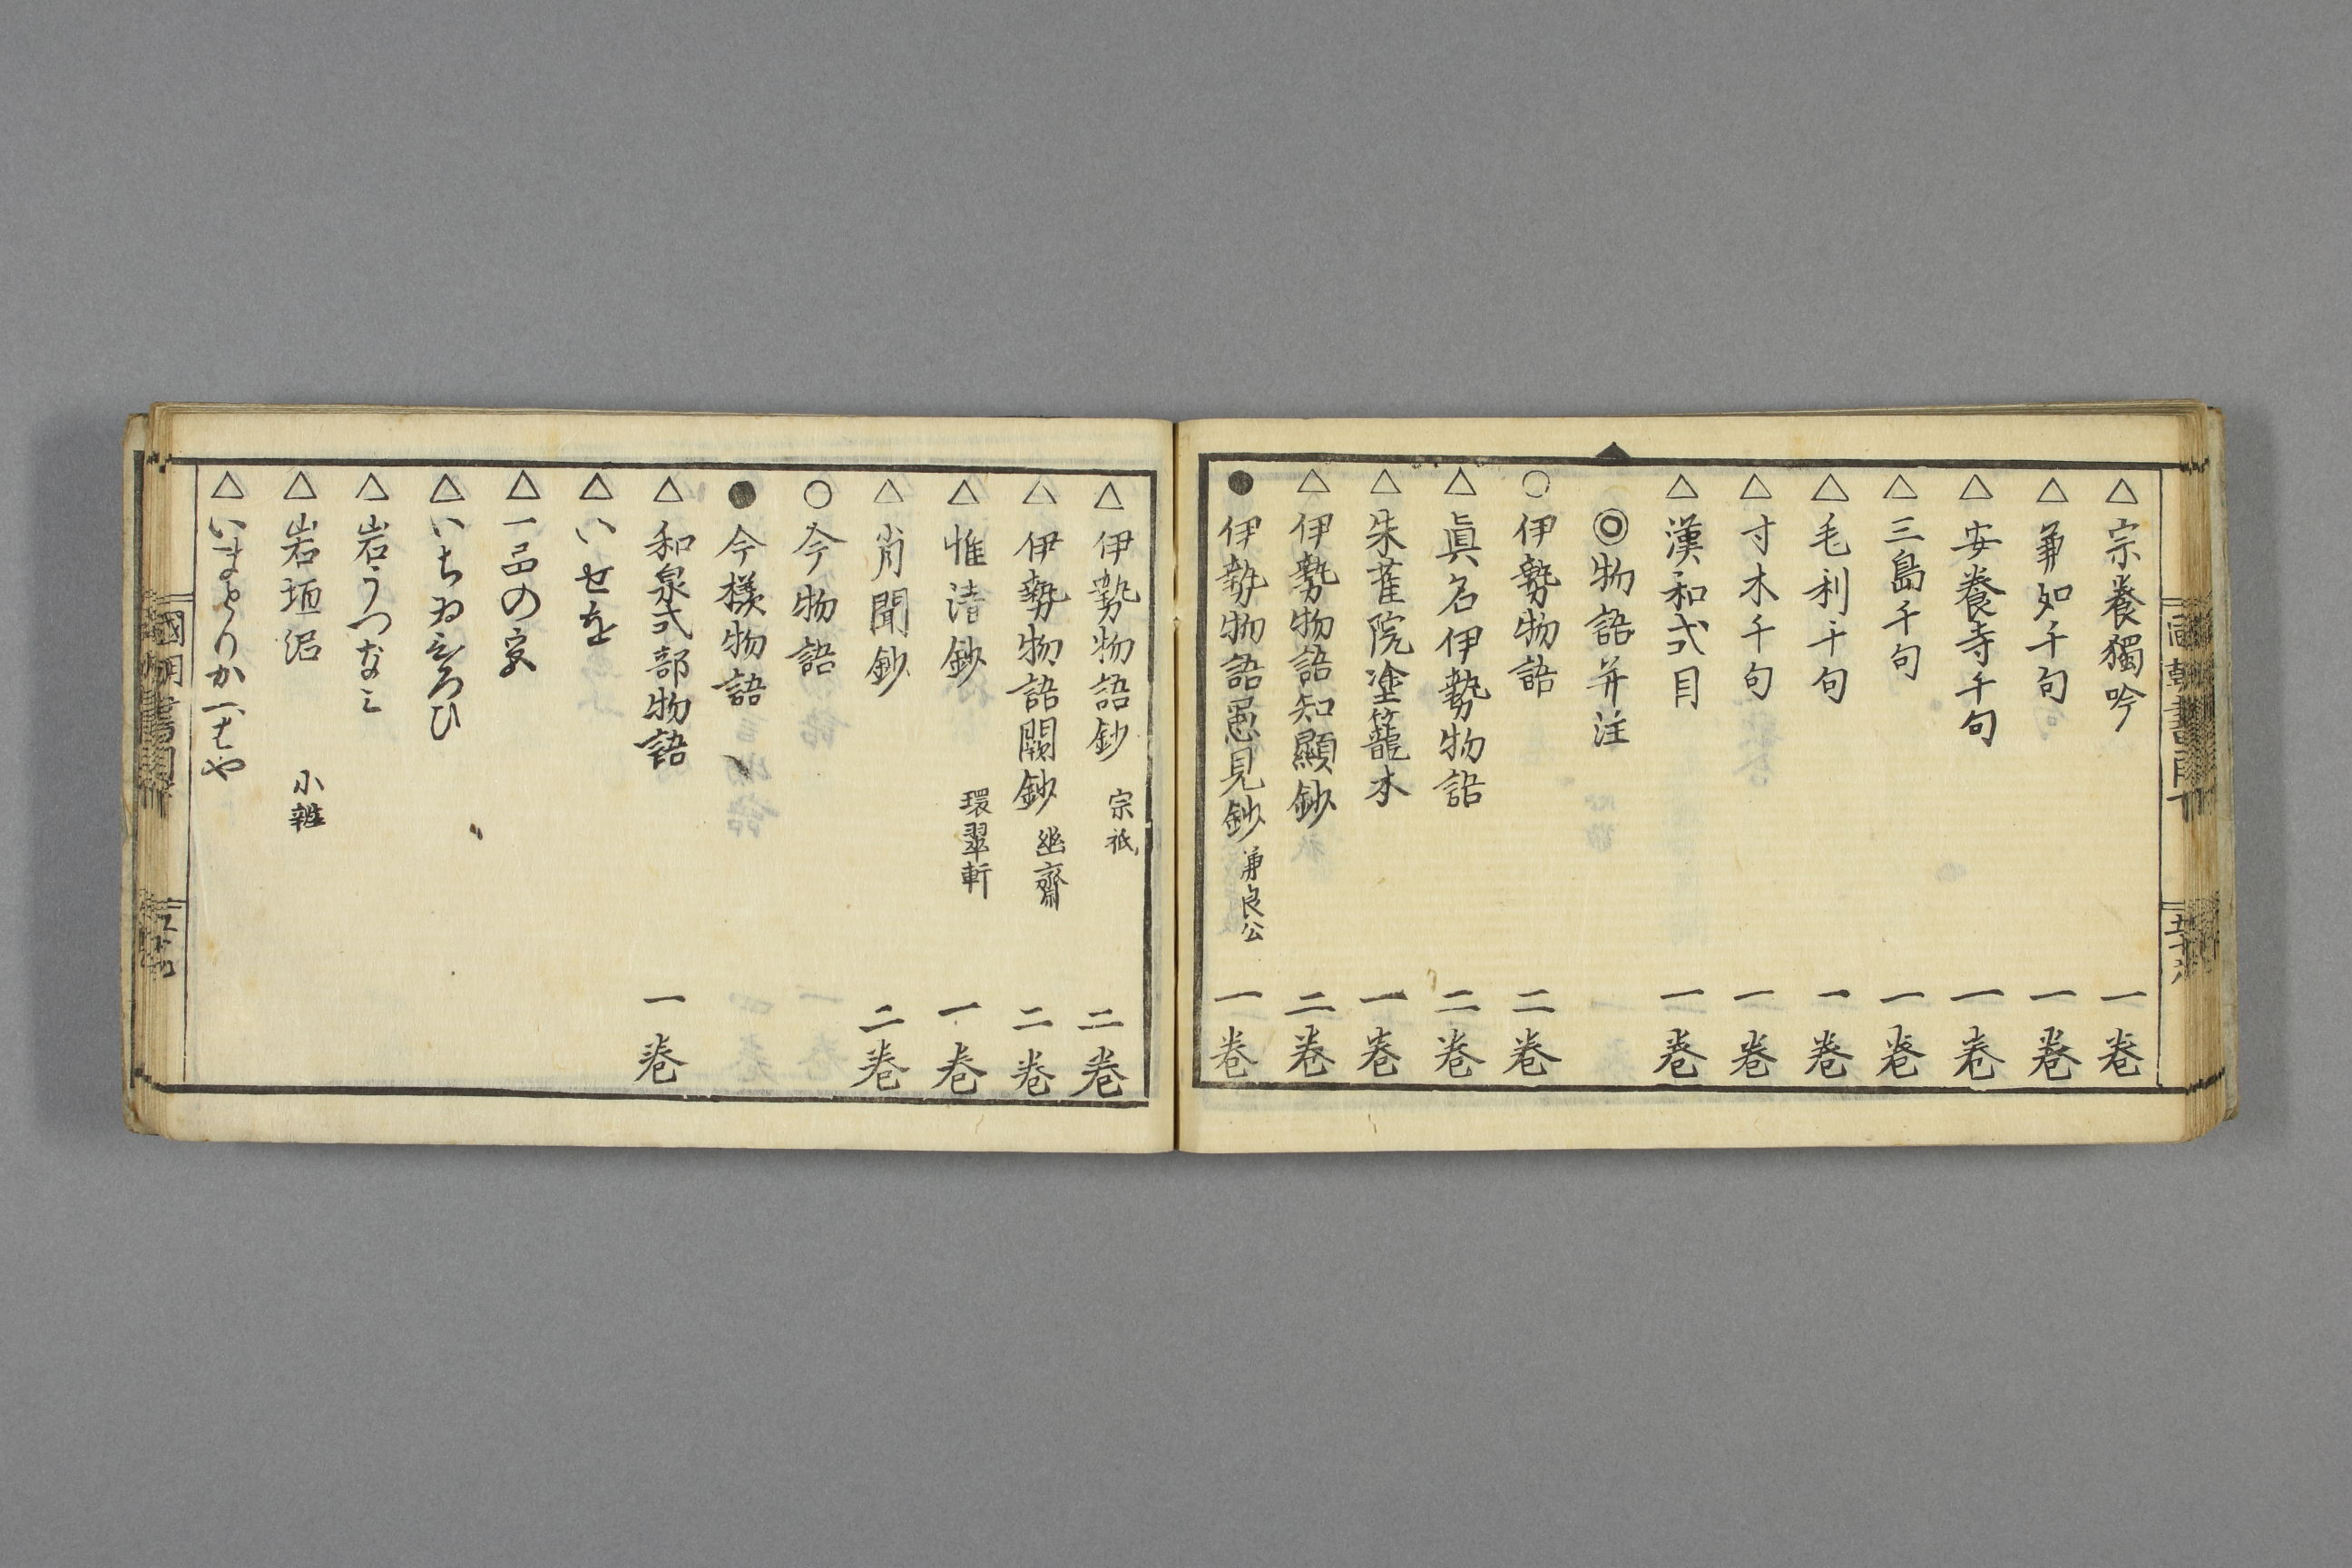 △宗養獨吟 一卷
△兼如千句 一卷
△安養寺千句 一卷
△三島千句 一卷
△毛利千句 一卷
△寸木千句 一卷
△漢和式目 一卷
◎物語并注
○伊勢物語 二卷
△眞名伊勢物語 二卷
△朱雀院塗籠本 一卷
△伊勢物語知顯鈔 二卷
●伊勢物語愚見鈔 兼良公 一卷
△伊勢物語鈔 宗祇 二卷
△伊勢物語闕鈔 幽齋 二卷
△惟清鈔 環翠軒 一卷
△肖聞鈔 二卷
○今物語
●今樣物語
△和泉式部物語 一卷
△いせを
△一品の宮
△いちゐひろひ
△岩うつなミ
△岩垣沼 小辨
△いまとりかへはや
國朝書目